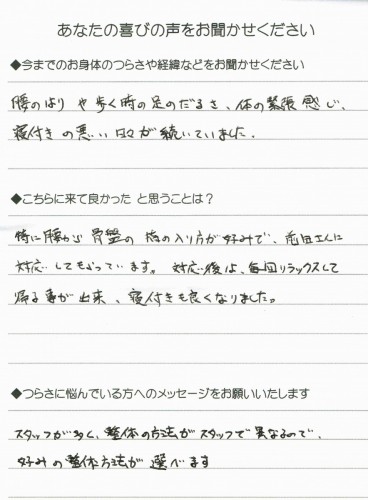 あなたの喜びの声をお聞かせください
◆今までのお身体のつらさや経緯などをお聞かせください
腰のはりや歩く時の足のだるさ、体の緊張感じ、
寝付きの悪い日々が続いていました。
◆こちらに来て良かった と思うことは？
特に腰から骨盤の指の入り方が好みで、
対応してもらっています。対応後は、毎回リラックスして
帰る事が出来、寝付きも良くなりました。
◆つらさに悩んでいる方へのメッセージをお願いいたします
スタッフが多く、整体の方法がスタッフで異なるので、
好みの整体方法が選べます